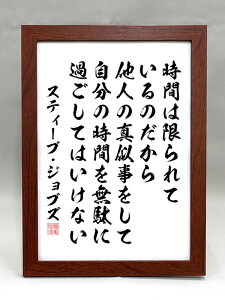 時間は限られて
いるのだから
他人の真似事をして
自分の時間を無駄に
過ごしてはいけない
スティーブ・ジョブズ